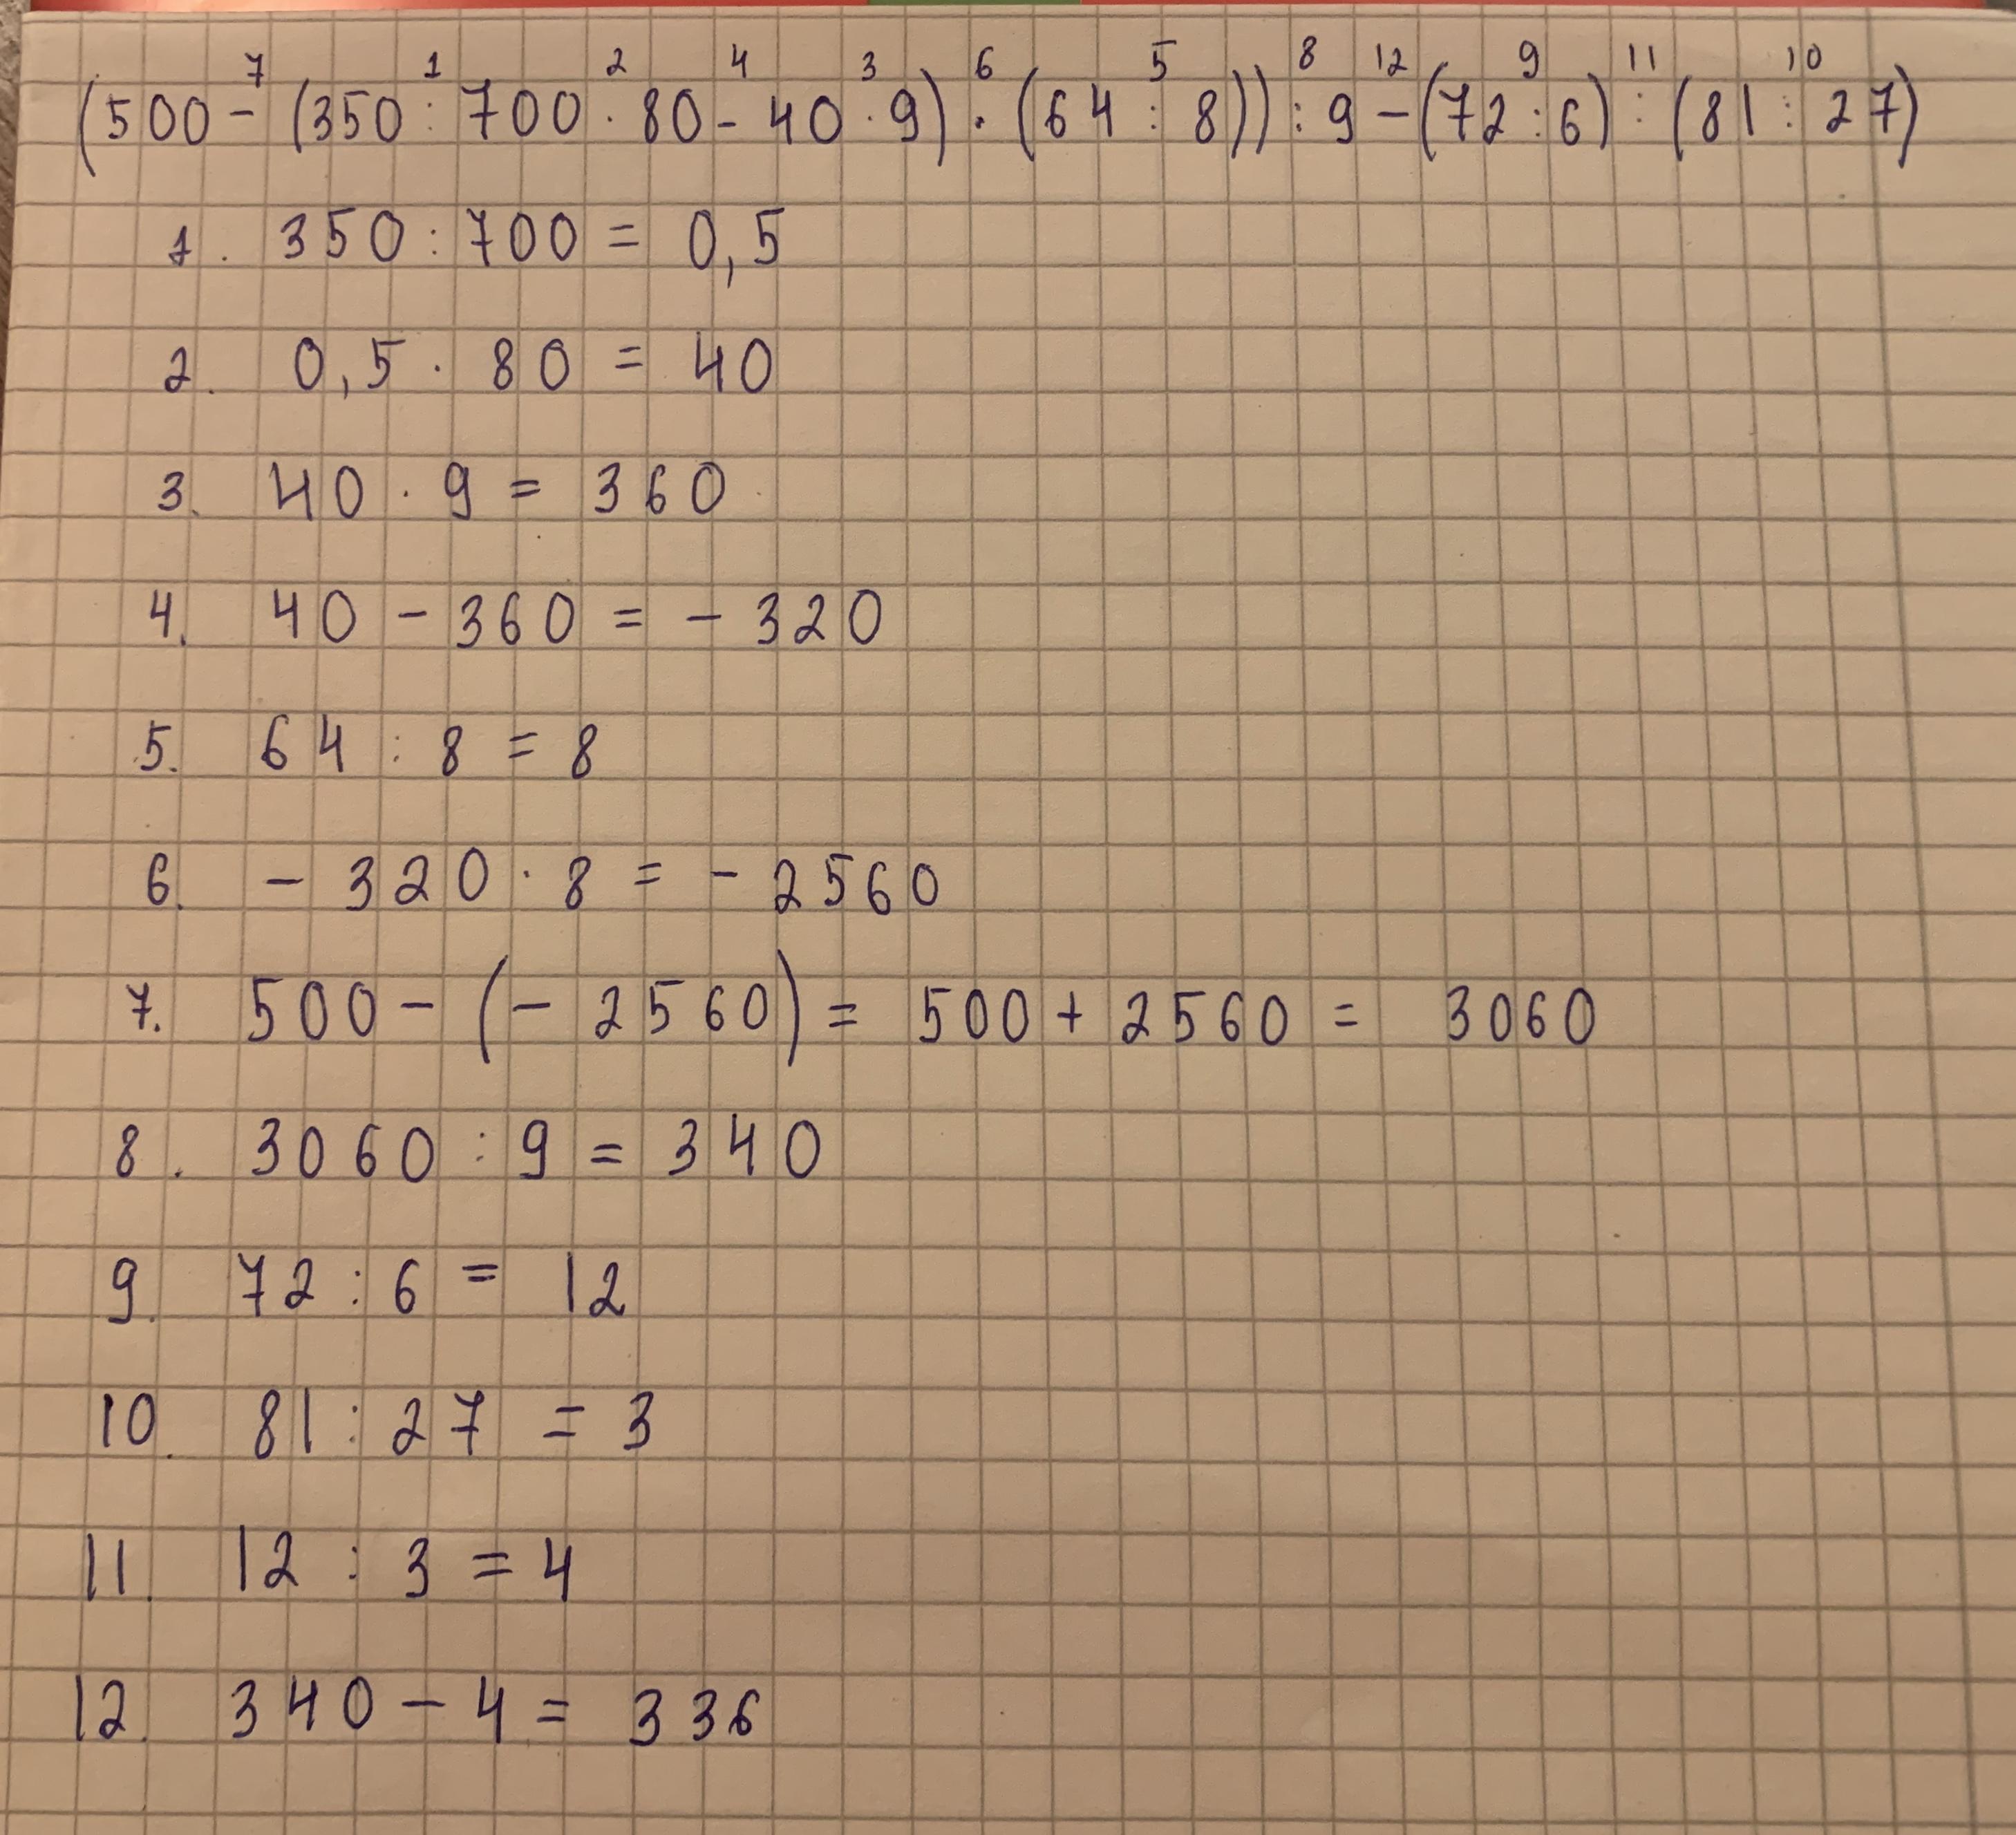 7 1 2 4 3 6 5 8 12 9 11 10
(500 - (350 : 700 · 80 - 40 · 9) · (64 : 8)) : 9 - (72 : 6) : (81 : 27)
1. 350 : 700 = 0,5
2. 0,5 · 80 = 40
3. 40 · 9 = 360
4. 40 - 360 = - 320
5. 64 : 8 = 8
6. - 320 · 8 = - 2560
7. 500 - (- 2560) = 500 + 2560 = 3060
8. 3060 : 9 = 340
9. 72 : 6 = 12
10. 81 : 27 = 3
11. 12 : 3 = 4
12. 340 - 4 = 336